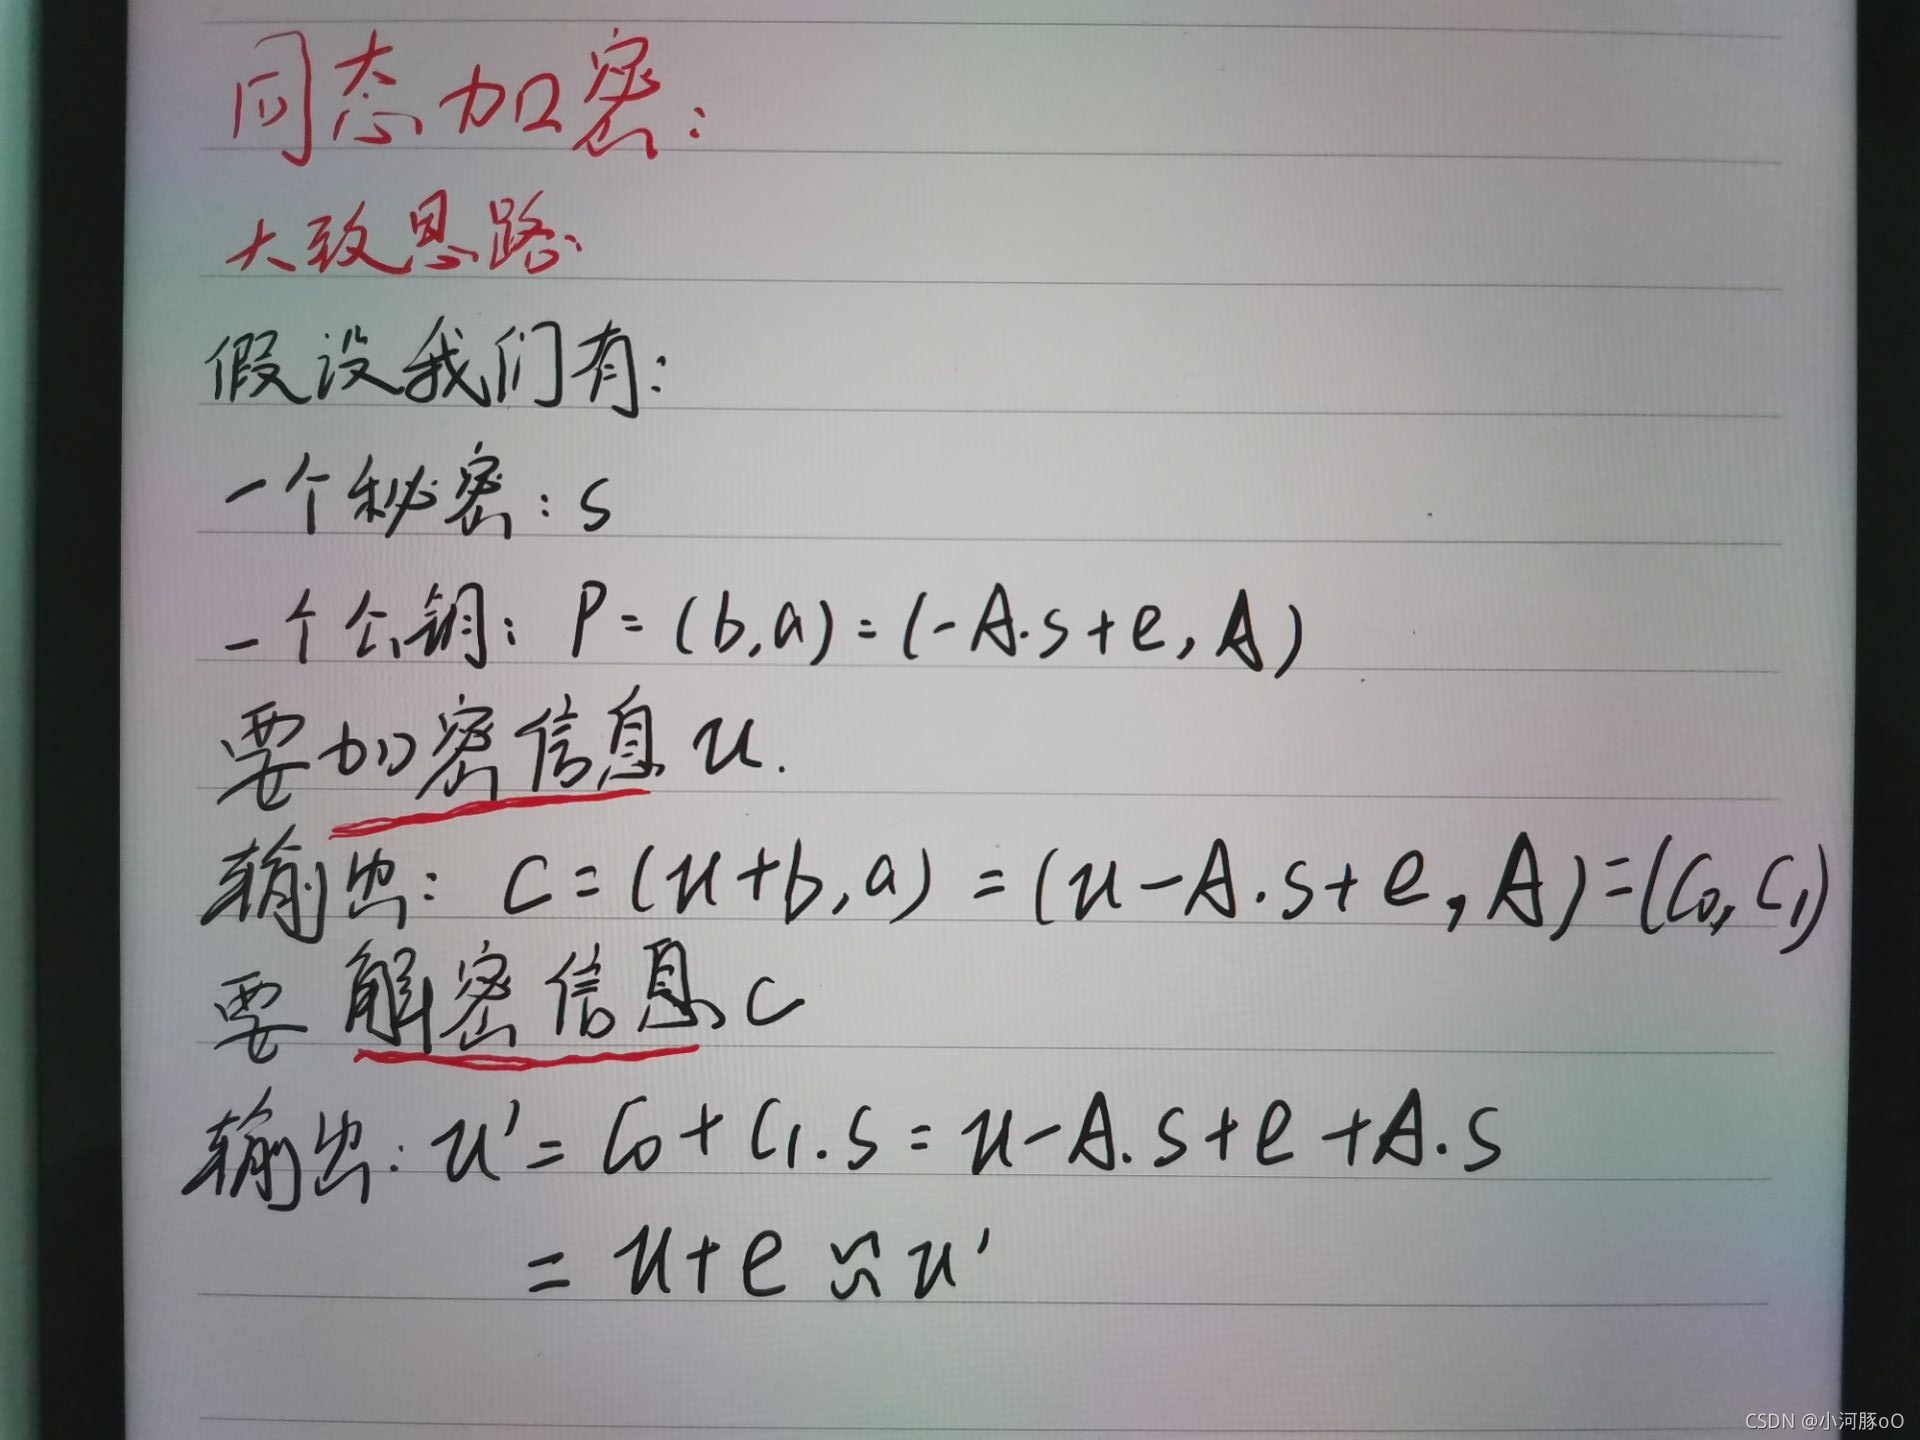 同态加密:
大致思路.
假设我们有:
一个秘密: s
一个公钥: P = (b,a) = (-A·s+e, A)
要加密信息 u.
输出: C = (u+b, a) = (u-A·s+e, A) = (C₀, C₁)
要解密信息 c
输出: u' = C₀ + C₁·s = u-A·s+e+A·s
= u+e ≈ u'
CSDN @小河豚oO